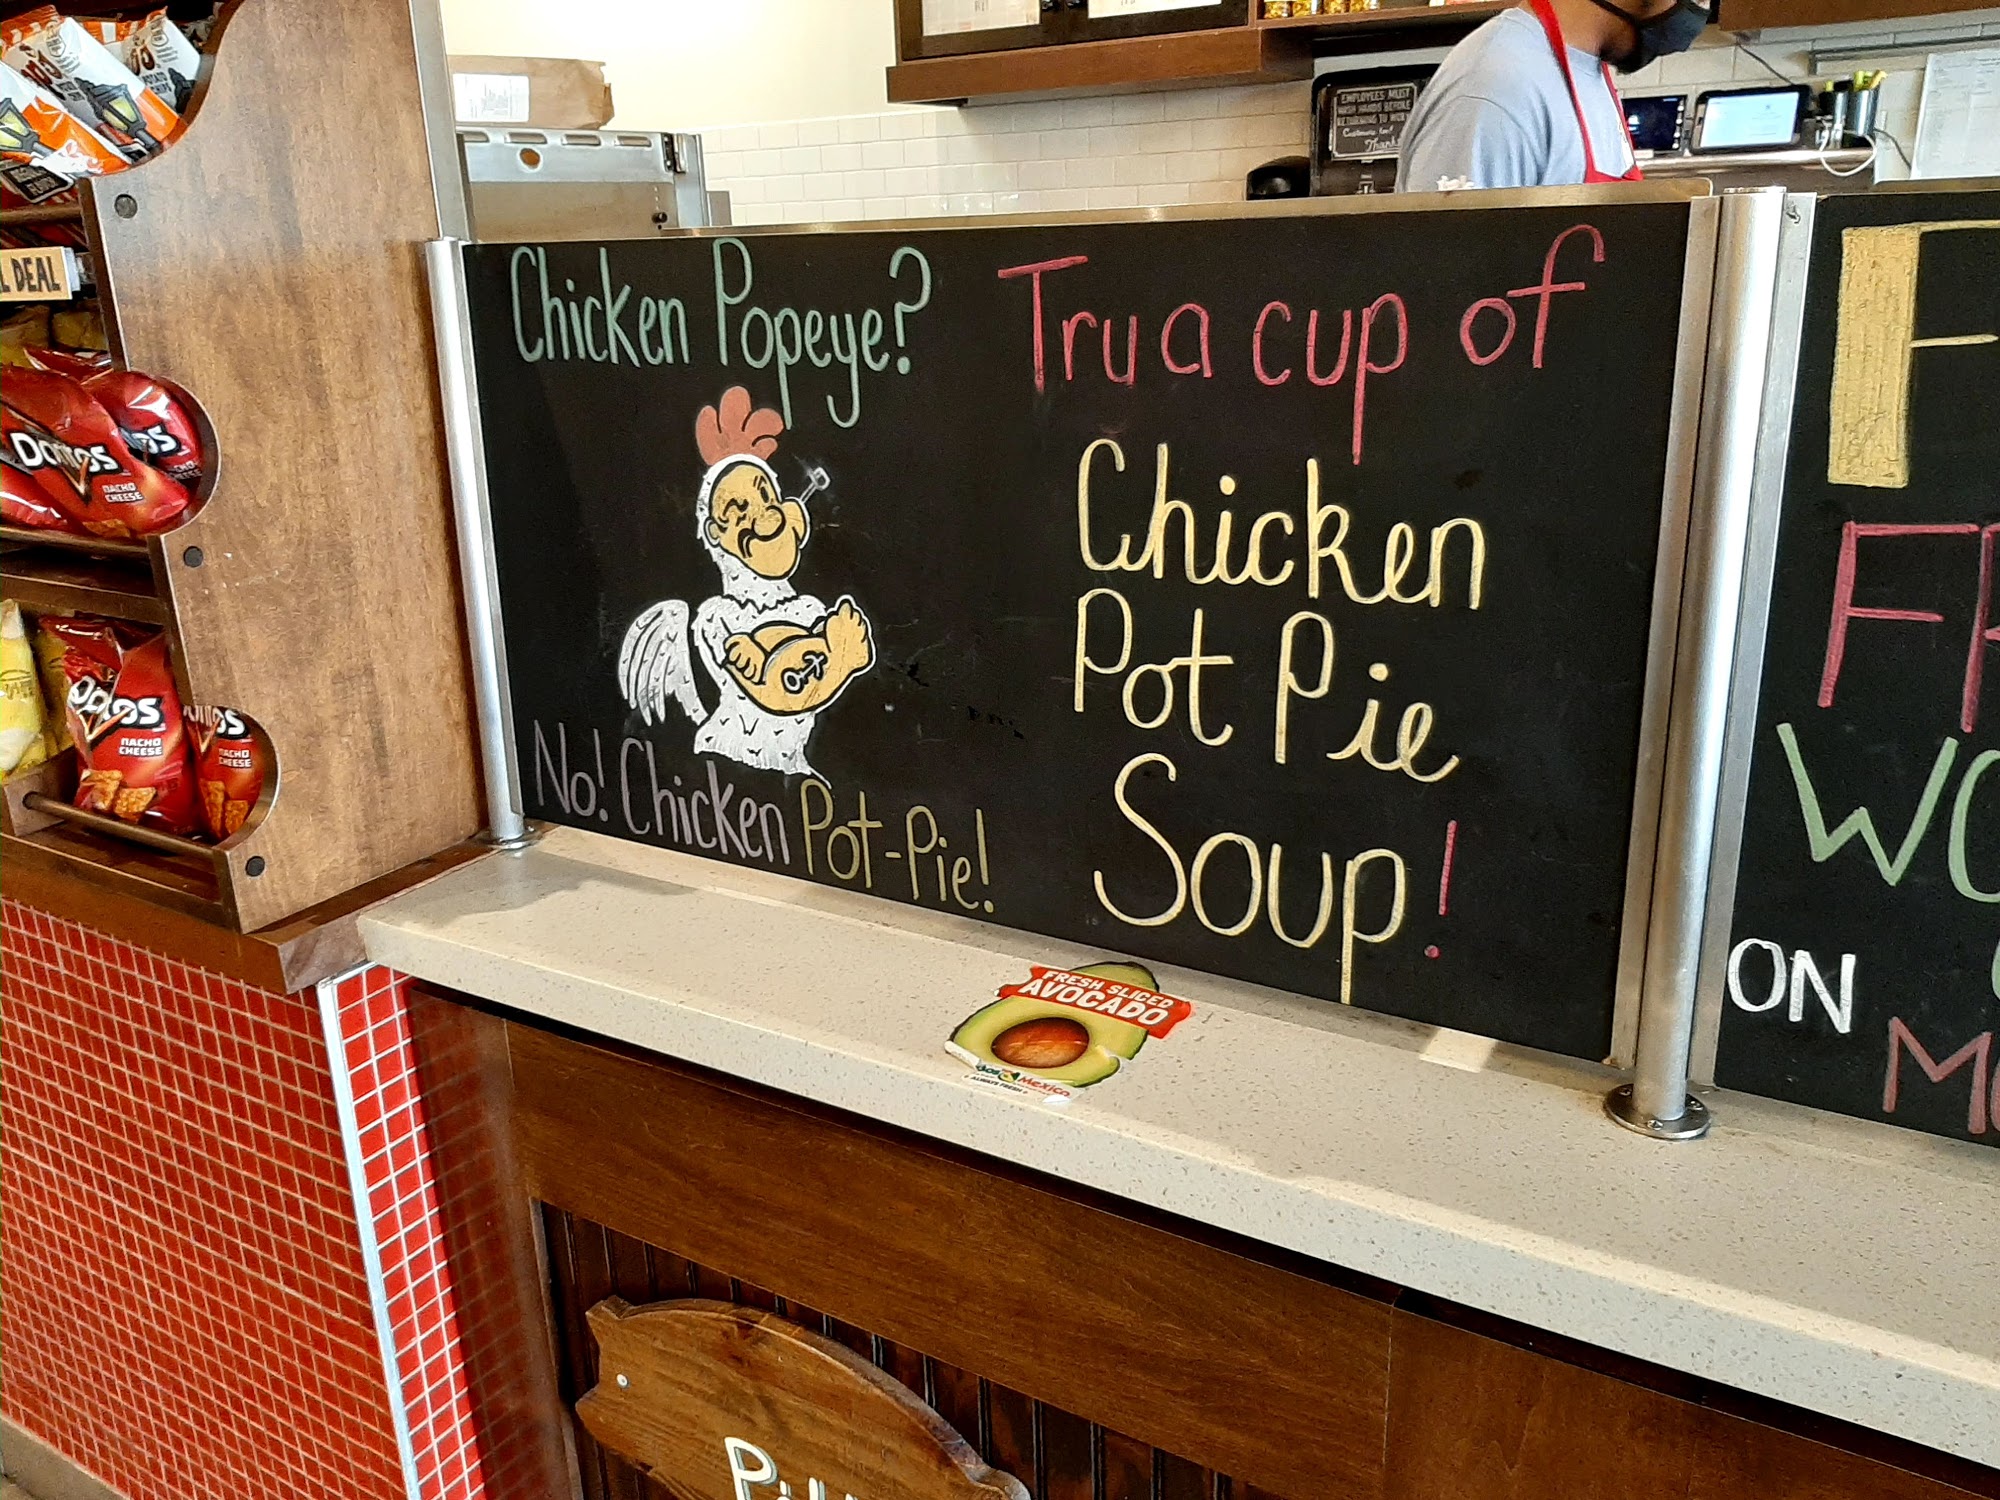 Chicken Popeye?
No! Chicken Pot-Pie!
Tru a cup of
Chicken
Pot Pie
Soup!
ON
EMPLOYEES MUST
WASH HANDS BEFORE
RETURNING TO WORK
Customers too!
Thanks
DEAL
Doritos
NACHO
CHEESE
NACHO
CHEESE
NACHO
CHEESE
FRESH SLICED
AVOCADO
Mexico
ALWAYS FRESH